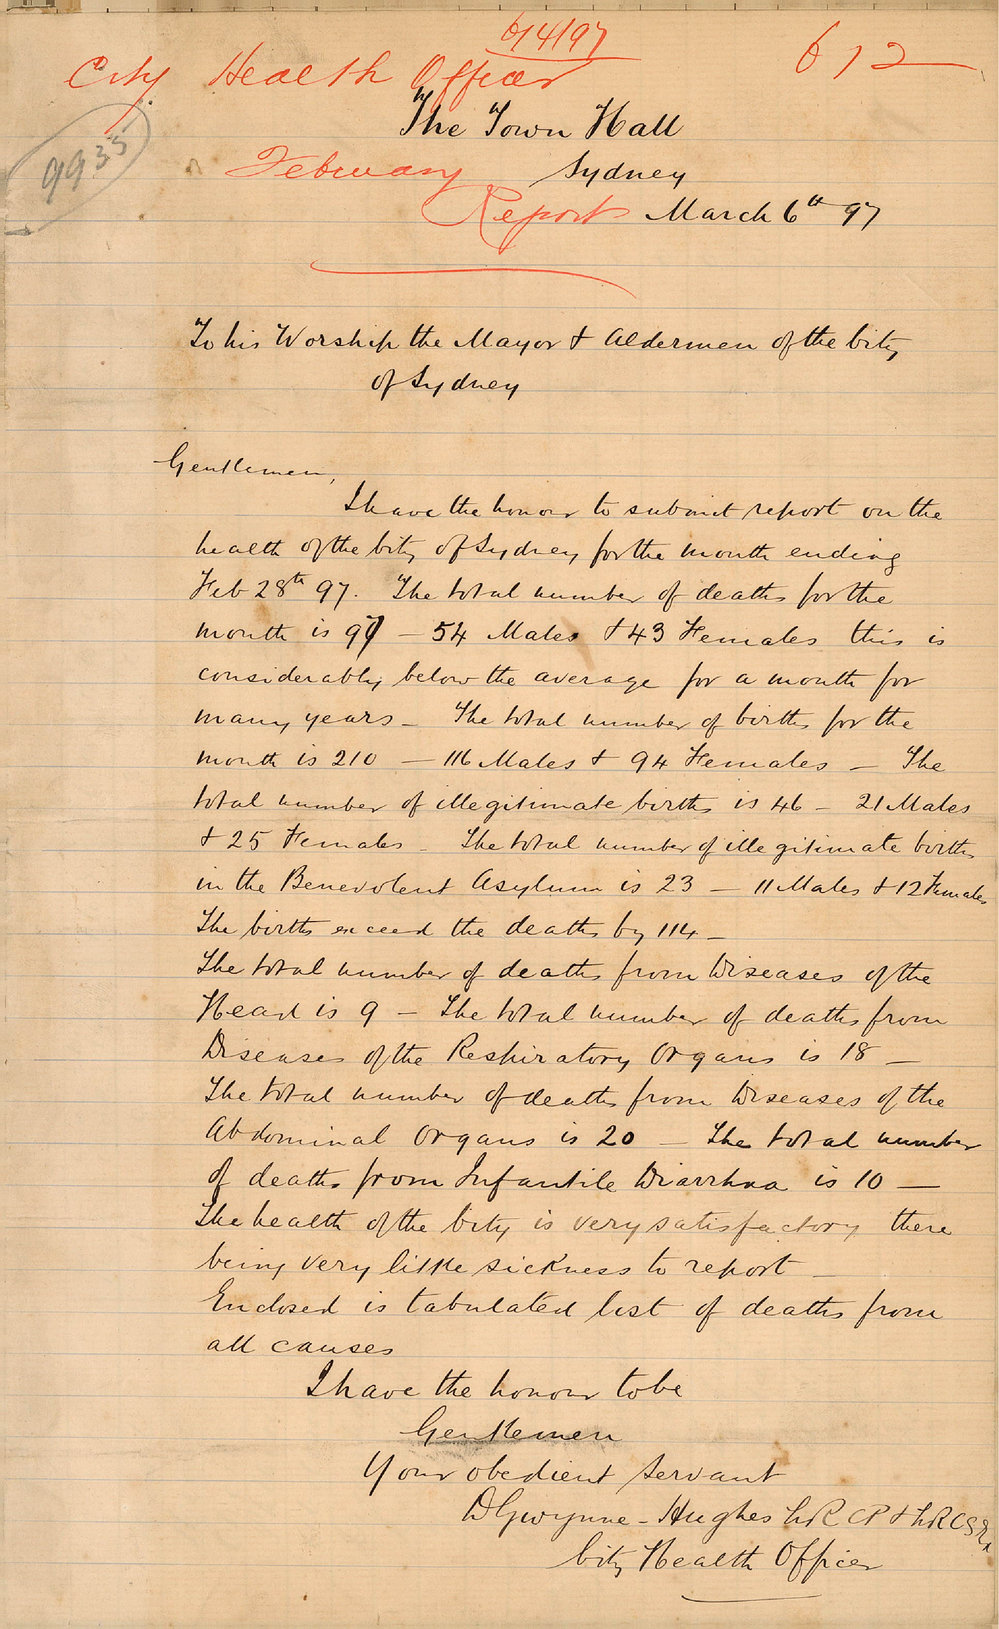 6/4/97
612
City Health Officer
The Town Hall
9935
February
Sydney
Report
March 6th 97
To his Worship the Mayor & Aldermen of the City
of Sydney
Gentlemen,
I have the honour to submit report on the
health of the City of Sydney for the month ending
Feb 28th 97. The total number of deaths for the
month is 97 – 54 Males & 43 Females this is
considerably below the average for a month for
many years – The total number of births for the
month is 210 – 116 Males & 94 Females – The
total number of illegitimate births is 46 – 21 Males
& 25 Females – The total number of illegitimate births
in the Benevolent Asylum is 23 – 11 Males & 12 Females
The births exceed the deaths by 114 –
The total number of deaths from Diseases of the
Head is 9 – The total number of deaths from
Diseases of the Respiratory Organs is 18 –
The total number of deaths from Diseases of the
Abdominal Organs is 20 – The total number
of deaths from Infantile Diarrhœa is 10 –
The health of the City is very satisfactory there
being very little sickness to report –
Enclosed is tabulated list of deaths from
all causes
I have the honour to be
Gentlemen
Your obedient servant
D Gwynne-Hughes LRCP & LRCSEd
City Health Officer